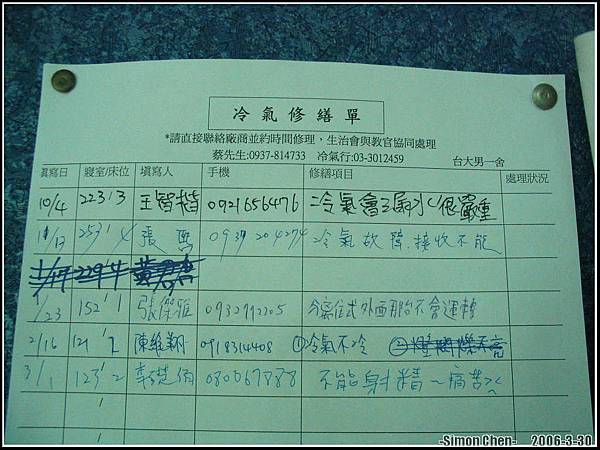 冷氣修繕單
*請直接聯絡廠商並約時間修理，生治會與教官協同處理
蔡先生:0937-814733 冷氣行:03-3012459 台大男一舍
填寫日 寢室/床位 填寫人 手機 修繕項目 處理狀況
10/4 223'3 王智楷 0921656476 冷氣會漏水(很嚴重
11/13 253' 張 0937204274 冷氣故障,接收不能
11/17 229'4
1/23 152'1 張傑雅 0932772205 分離式外面的不會運轉
2/16 121'2 陳維翔 0918314408 ①冷氣不冷 ②
3/1 123'2 李 080067888 不能射精~痛苦><
-Simon Chen- 2006-3-30